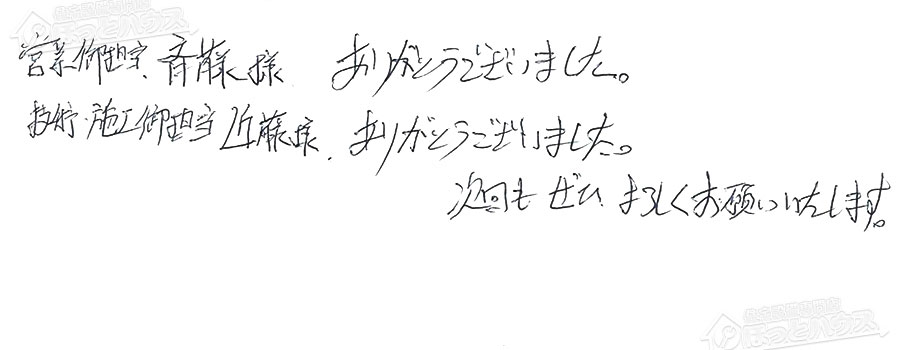 住宅設備専門店
ほっとハウス
営業御担当、斉藤様 ありがとうございました。
技術・施工御担当 近藤様、ありがとうございました。
次回も ぜひ よろしくお願いいたします。
住宅設備専門店
ほっとハウス